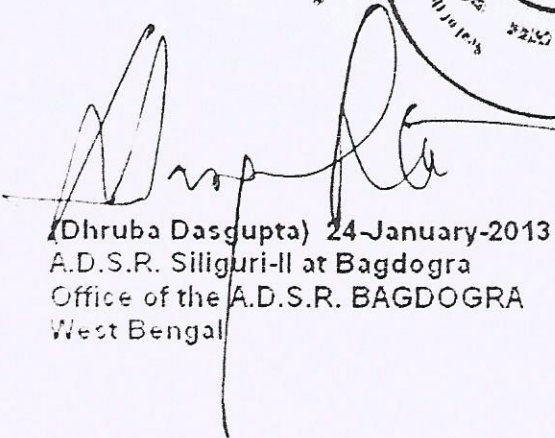 (Dhruba Dasgupta) 24-January-2013
A.D.S.R. Siliguri-II at Bagdogra
Office of the A.D.S.R. BAGDOGRA
West Bengal